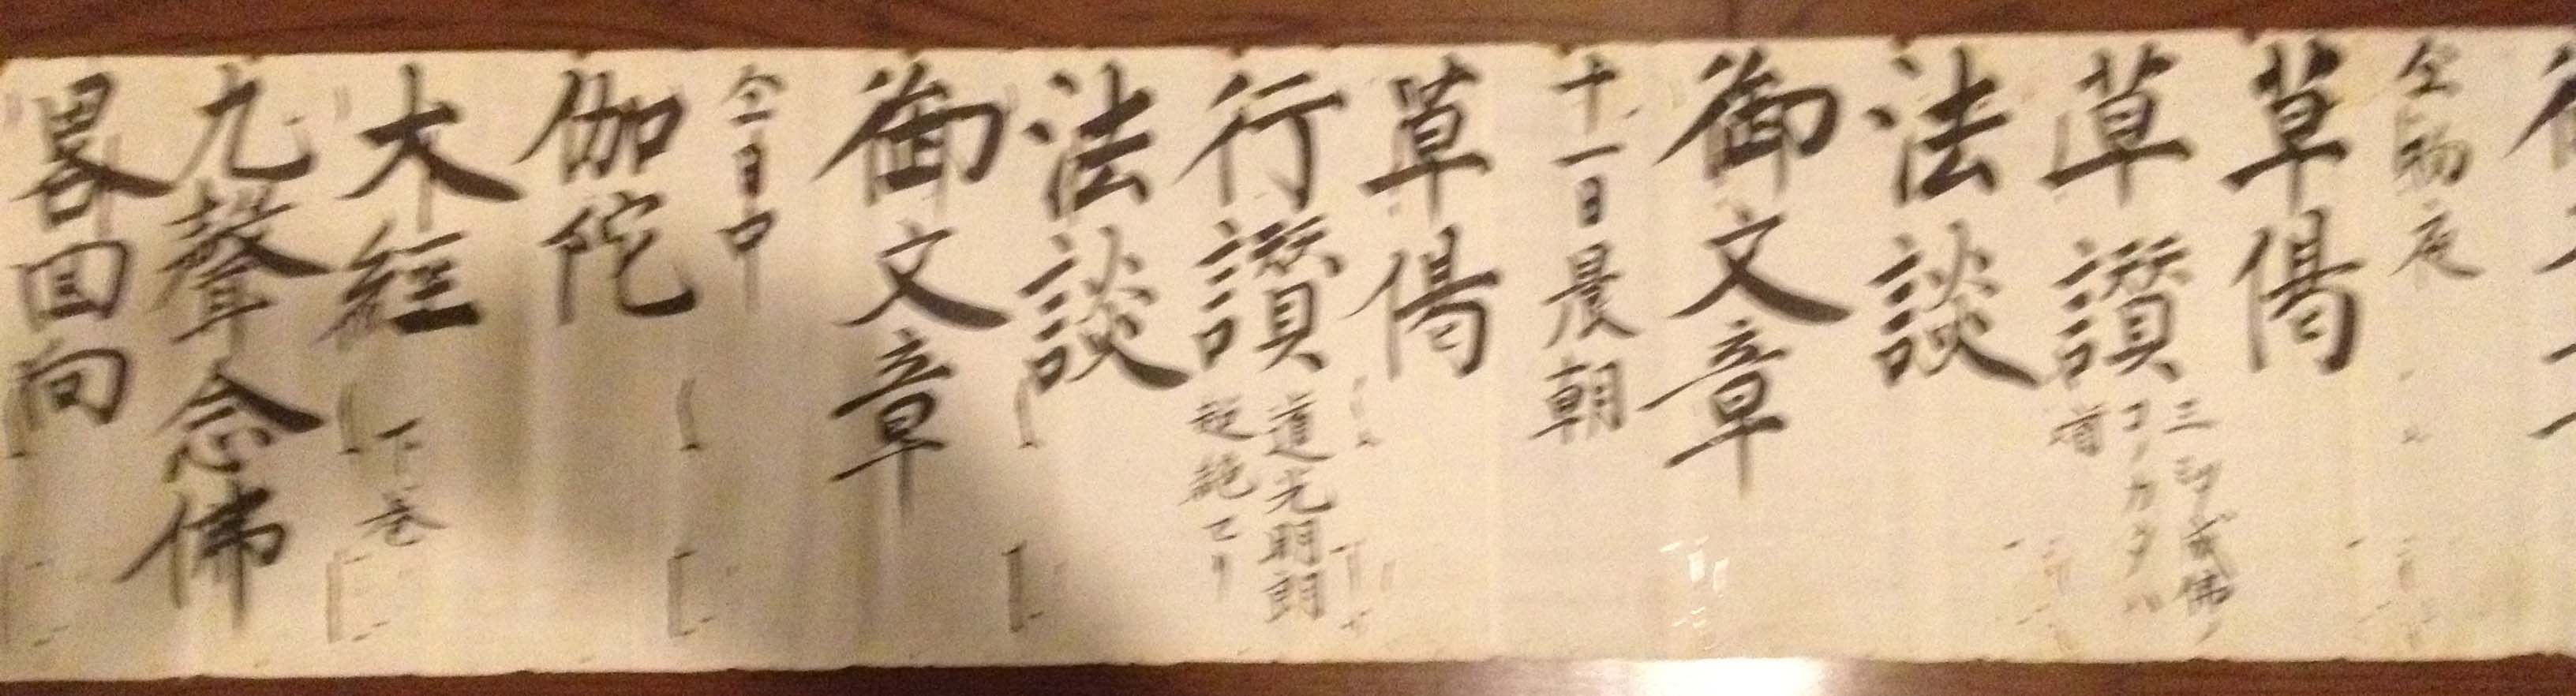 仝初夜
草偈
草讃
ミダ成佛ノ
コノカタハ
法談
御文章
十一日晨朝
草偈
行讃
道光明朗
超絶セリ
法談
御文章
仝日中
伽佗
大經 下巻
九聲念佛
畧回向